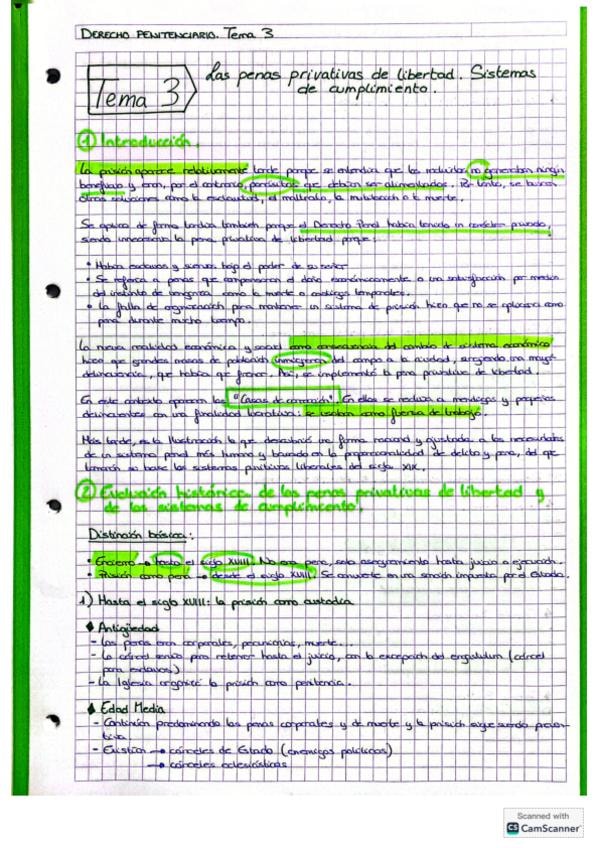 DERECHO PENITENCIARIO. Tema 3
Tema 3
Las penas privativas de libertad. Sistemas
de cumplimiento.
① Introducción.
La prisión aparece relativamente tarde porque se entendía que los recluidos no generaban ningún
beneficio y eran, por el contrario, parásitos que debían ser alimentados. Por tanto, se buscan
otras soluciones como la esclavitud, el maltrato, la mutilación o la muerte.
Se aplica de forma tardía también porque el Derecho Penal había tenido un carácter privado,
siendo innecesaria la pena privativa de libertad porque:
• Había esclavos y siervos bajo el poder de su señor
• Se reforzó a penas que compensaran el daño económicamente o una satisfacción por medio
del instinto de venganza como la muerte o castigos temporales.
• La falta de organización para mantener un sistema de prisión hizo que no se aplicara como
pena durante mucho tiempo.
La nueva realidad económica y social como consecuencia del cambio de sistema económico
hizo que grandes masas de población inmigraran del campo a la ciudad, surgiendo una mayor
delincuencia, que había que frenar. Así, se implementó la pena privativa de libertad.
En este contexto aparecen las "Casas de corrección". En ellas se recluía a mendigos y pequeños
delincuentes con una finalidad lucrativa: se usaban como fuerza de trabajo.
Más tarde, es la Ilustración la que descubrió una forma racional y ajustada a las necesidades
de un sistema penal más humano y basado en la proporcionalidad de delito y pena, del que
tomarán su base los sistemas punitivos liberales del siglo XIX.
② Evolución histórica de las penas privativas de libertad y
de los sistemas de cumplimiento.
Distinción básica:
• Encierro → hasta el siglo XVIII. No era pena, solo aseguramiento hasta juicio o ejecución.
• Prisión como pena → desde el siglo XVIII. Se convierte en una sanción impuesta por el Estado.
1) Hasta el siglo XVIII: la prisión como custodia
♦ Antigüedad
- Las penas eran corporales, pecuniarias, muerte...
- La cárcel servía para retener hasta el juicio, con la excepción del ergastulum (cárcel
para esclavos)
- La Iglesia organizó la prisión como penitencia.
♦ Edad Media
- Continúan predominando las penas corporales y de muerte y la prisión sigue siendo preven-
tiva.
- Existían → cárceles de Estado (enemigos políticos)
→ cárceles eclesiásticas
Scanned with
CS CamScanner